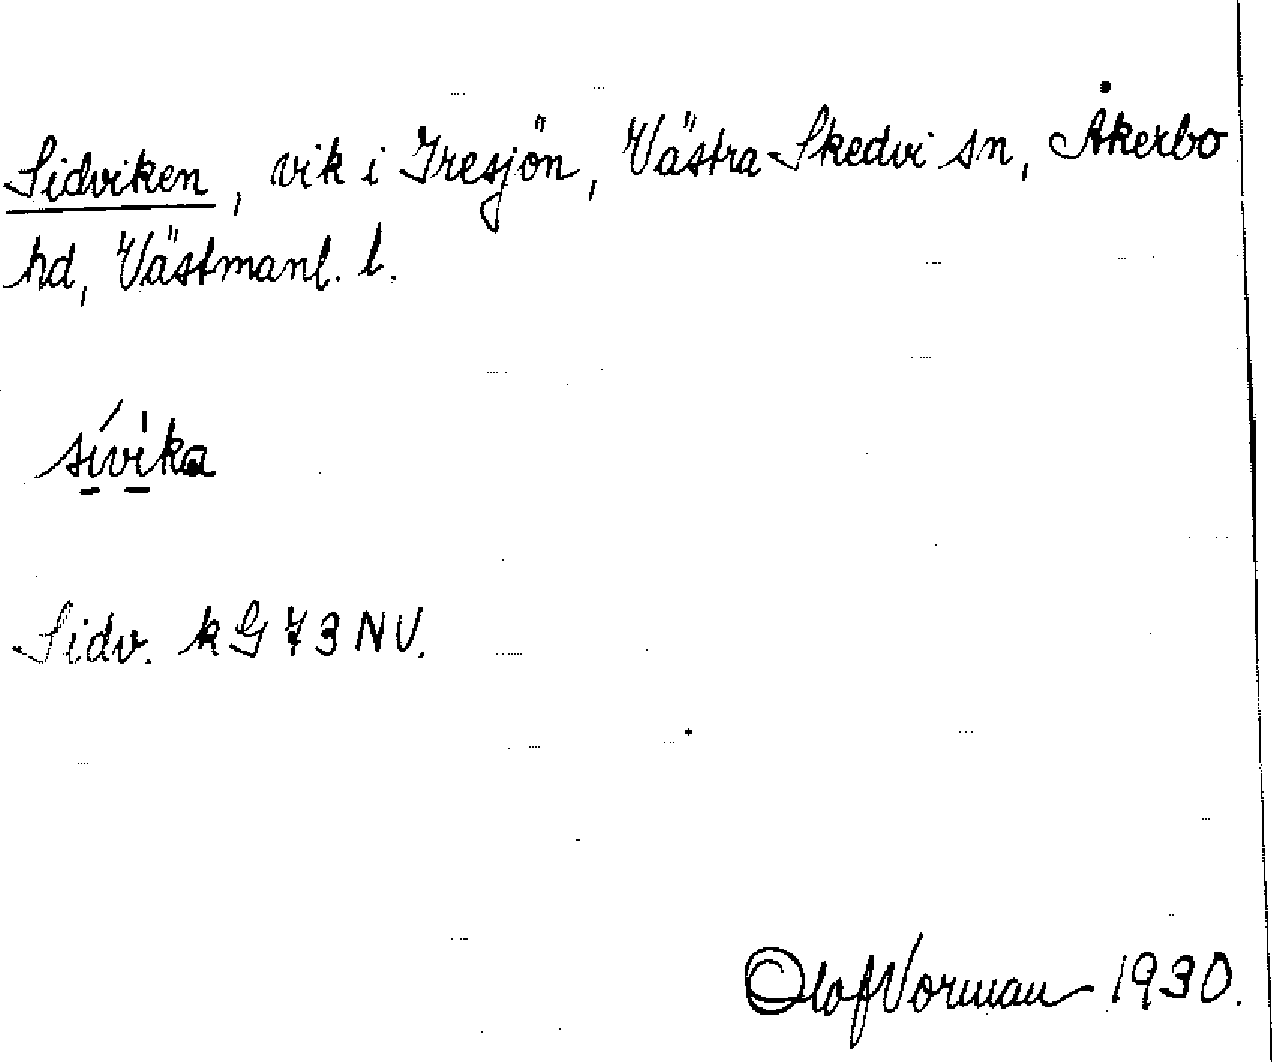 Sidviken, vik i Iresjön, Västra Skedvi sn, Åkerbo
hd, Västmanl. l.
sívika
Sidv. k G 73 NV.
Olof Norman 1930.